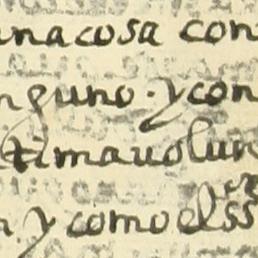 una cosa con
nguno. y con
tima volun
n. y como el ss